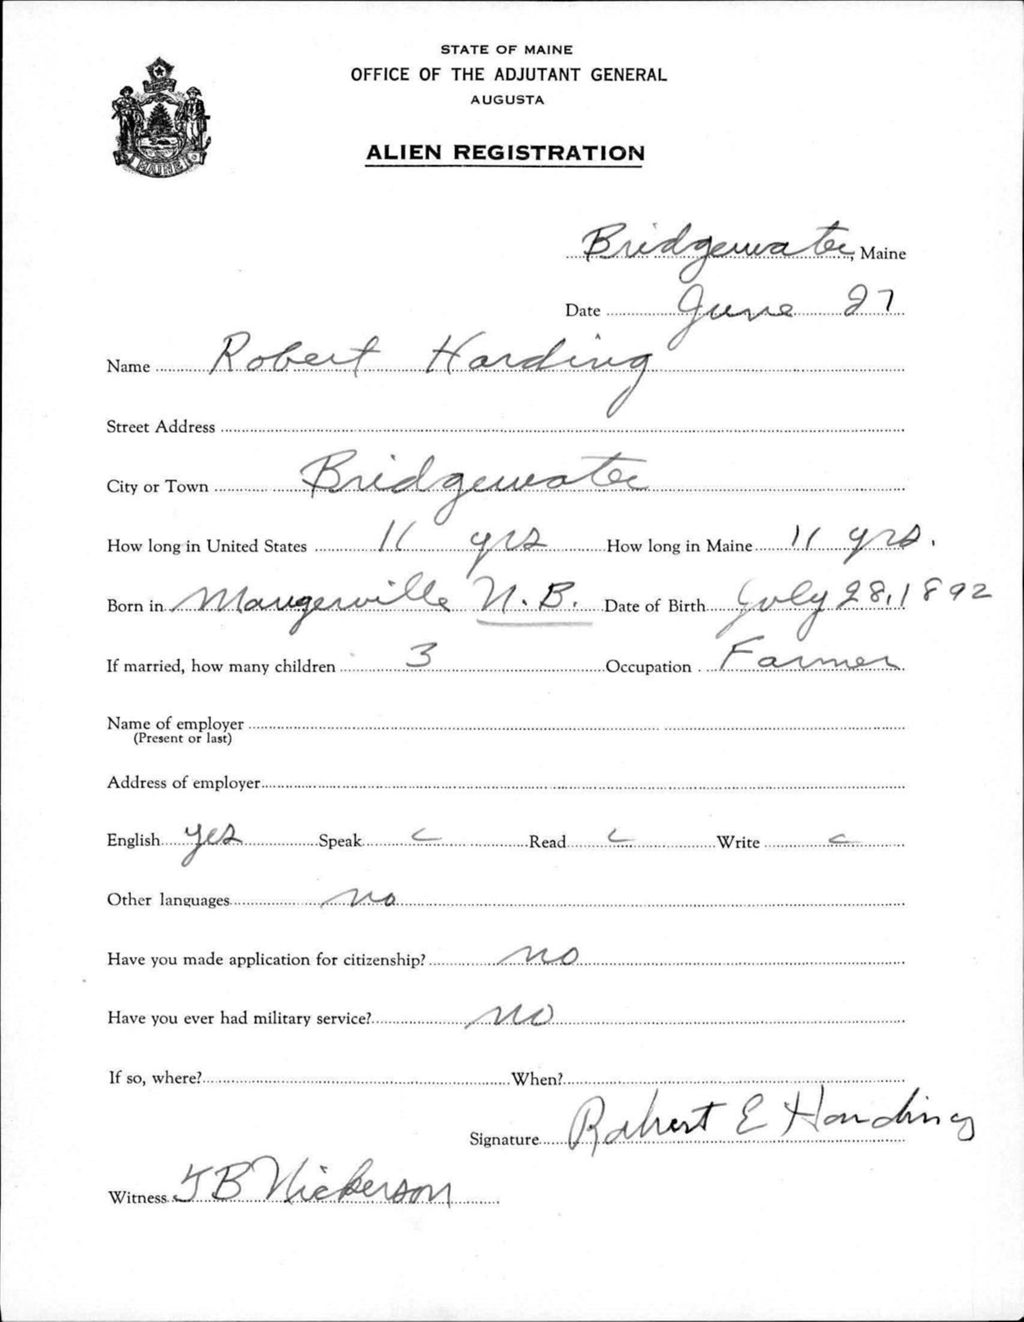 STATE OF MAINE
OFFICE OF THE ADJUTANT GENERAL
AUGUSTA
ALIEN REGISTRATION
MAINE
Bridgewater, Maine
Date June 27
Name Robert Harding
Street Address
City or Town Bridgewater
How long in United States 11 yrs How long in Maine 11 yrs.
Born in Maugerville N.B. Date of Birth July 28, 1892
If married, how many children 3 Occupation Farmer
Name of employer
(Present or last)
Address of employer
English yes Speak Read Write
Other languages no
Have you made application for citizenship? no
Have you ever had military service? no
If so, where? When?
Signature Robert E Harding
Witness J B Nickerson